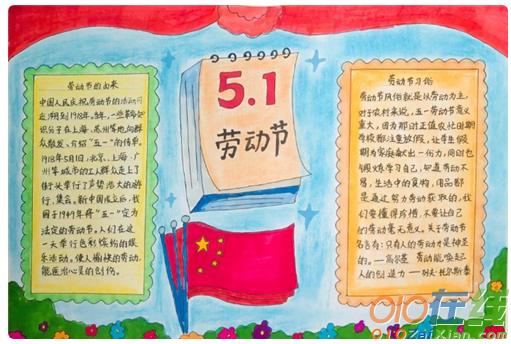 5.1
劳动节
劳动节的由来
中国人民庆祝劳动节的活动可
追溯到1918年。当年,一些革命知
识分子在上海、苏州等地向群
众散发、介绍"五一"的传单。
1918年5月1日,北京、上海、广
州等城市的工人群众走上了
街头举行了声势浩大的游
行、集会。新中国成立后,我
国于1949年将"五一"定为
法定的劳动节。人们在这
一天举行色彩缤纷的娱
乐活动。使人愉快的劳动,
能医治心灵的创伤。
劳动节习俗
劳动节风俗就是以劳动为主,
对于农村来说,五一劳动节意义
重大,因为那时正值农忙时期
学校都注重放假,让学生假
期为家庭献出一份力,同时也
锻炼学习自己,知道劳动不
易,生活中的食物,用品都
是通过努力劳动获取的,我
们要懂得珍惜,不要让自己
们的劳动毫无意义。关于劳动节
名言有:只有人的劳动是神圣
的。—高尔基 劳动能唤起
人的创造力 —列夫·托尔斯泰
010在线
010ZaiXian.com